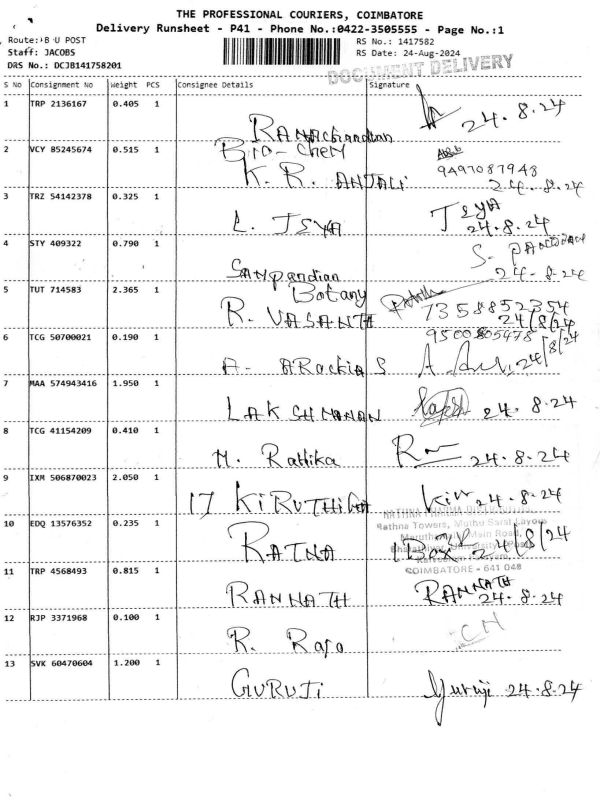 THE PROFESSIONAL COURIERS, COIMBATORE
Delivery Runsheet - P41 - Phone No.:0422-3505555 - Page No.:1
Route: B U POST
RS No.: 1417582
Staff: JACOBS
RS Date: 24-Aug-2024
DRS No.: DCJB141758201
DOCUMENT DELIVERY
S No Consignment No Weight PCS Consignee Details Signature
1 TRP 2136167 0.405 1
24.8.24
RAMAchandran
2 VCY 85245674 0.515 1 Bio-Chem
K. R. ANJALI 9497087948
24.8.24
3 TRZ 54142378 0.325 1
L. JEYA JEYA
24.8.24
4 STY 409322 0.790 1 S.
Sampandian 24-8.24
5 TUT 714583 2.365 1 Botany
R. VASANTH 7358852354
24/8/24
6 TCG 50700021 0.190 1 9500805478
A. ARockia S 24/8/24
7 MAA 574943416 1.950 1
LAKSHMANAN 24.8.24
8 TCG 41154209 0.410 1
M. Rathika 24.8.24
9 IXM 506870023 2.050 1
17 KIRUTHIGA 24.8.24
10 EDQ 13576352 0.235 1
Rathna Towers,
Main Road,
RATNA 1 Box 24/8/24
COIMBATORE - 641 048
11 TRP 4568493 0.815 1
RAMNATH RAMNATH
24.8.24
12 RJP 3371968 0.100 1
R. Raja CN
13 SVK 60470604 1.200 1
GURUJI Guruji 24.8.24